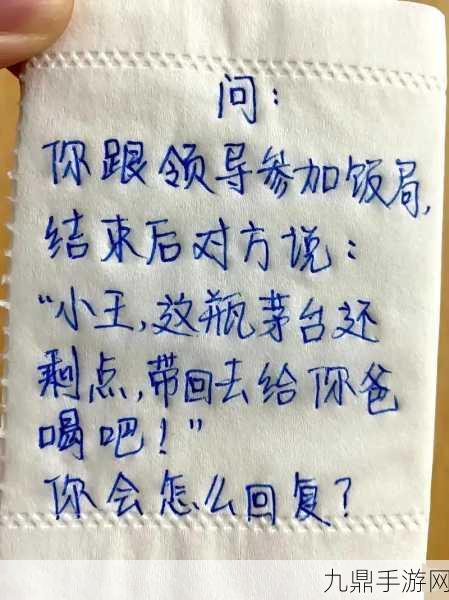 问：
你跟领导参加饭局，
结束后对方说：
“小王，这瓶茅台还
剩点，带回去给你爸
喝吧！”
你会怎么回复？
九鼎手游网